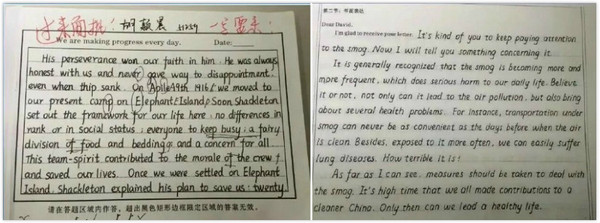 过来面批! 胡毅晨 11239 一定要来!
We are making progress every day. Date:
His perseverance won our faith in him. He was always
honest with us and never gave way to disappointment,
even when ship sank. On Aplile 9th 1916 we moved to
our present camp on Elephant Island. Soon Shackleton
set out the framework for our life here: no differences in
rank or in social status; everyone to keep busy; a fairy
division of food and bedding; and a concern for all.
This team-spirit contributed to the morale of the crew
and saved our lives. Once we were settled on Elephant
Island, Shackleton explained his plan to save us: twenty
请在答题区域内作答, 超出黑色矩形边框限定区域的答案无效。
第二节: 书面表达
Dear David,
I'm glad to receive your letter. It's kind of you to keep paying attention
to the smog. Now I will tell you something concerning it.
It is generally recognized that the smog is becoming more and
more frequent, which does serious harm to our daily life. Believe
it or not, not only can it lead to the air pollution, but also bring
about several health problems. For instance, transportation under
smog can never be as convenient as the days before when the air
is clean. Besides, exposed to it more often, we can easily suffer
lung diseases. How terrible it is!
As far as I can see, measures should be taken to deal with
the smog. It's high time that we all made contributions to a
cleaner China. Only then can we lead a healthy life.